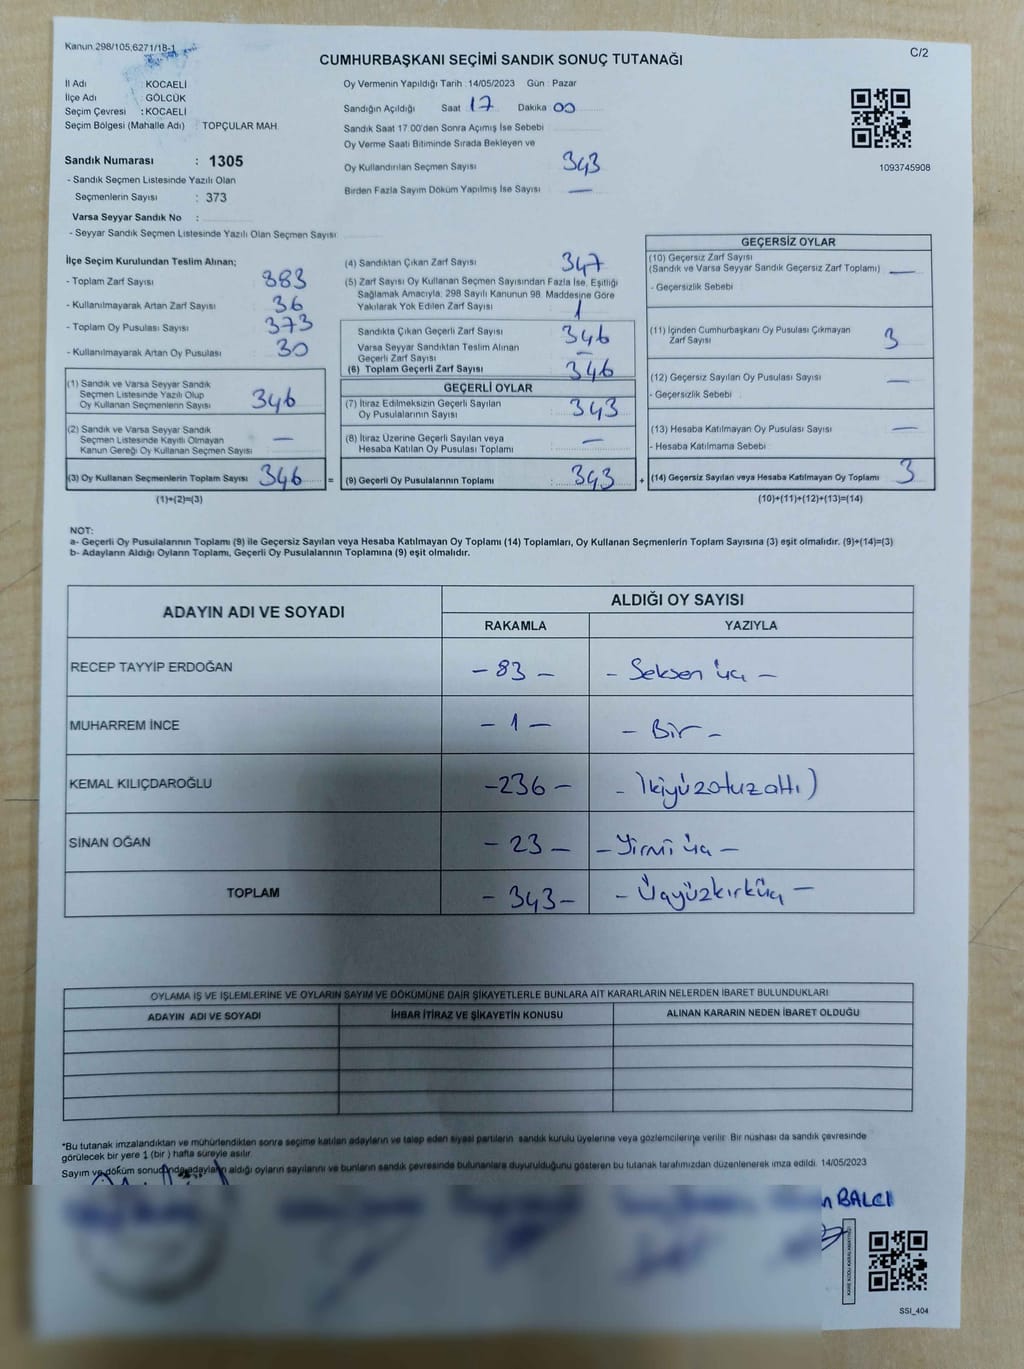 Kanun 298/105,6271/18-1
C/2
CUMHURBAŞKANI SEÇİMİ SANDIK SONUÇ TUTANAĞI
İl Adı : KOCAELİ
İlçe Adı : GÖLCÜK
Seçim Çevresi : KOCAELİ
Seçim Bölgesi (Mahalle Adı) : TOPÇULAR MAH.
Sandık Numarası : 1305
- Sandık Seçmen Listesinde Yazılı Olan
Seçmenlerin Sayısı : 373
Varsa Seyyar Sandık No :
- Seyyar Sandık Seçmen Listesinde Yazılı Olan Seçmen Sayısı
Oy Vermenin Yapıldığı Tarih : 14/05/2023 Gün : Pazar
Sandığın Açıldığı Saat 17 Dakika 00
Sandık Saat 17.00'den Sonra Açımış İse Sebebi
Oy Verme Saati Bitiminde Sırada Bekleyen ve
Oy Kullandırılan Seçmen Sayısı 343
Birden Fazla Sayım Döküm Yapılmış İse Sayısı —
1093745908
İlçe Seçim Kurulundan Teslim Alınan;
- Toplam Zarf Sayısı 383
- Kullanılmayarak Artan Zarf Sayısı 36
- Toplam Oy Pusulası Sayısı 373
- Kullanılmayarak Artan Oy Pusulası 30
(1) Sandık ve Varsa Seyyar Sandık
Seçmen Listesinde Yazılı Olup
Oy Kullanan Seçmenlerin Sayısı 346
(2) Sandık ve Varsa Seyyar Sandık
Seçmen Listesinde Kayıtlı Olmayan
Kanun Gereği Oy Kullanan Seçmen Sayısı —
(3) Oy Kullanan Seçmenlerin Toplam Sayısı 346 =
(1)+(2)=(3)
(4) Sandıktan Çıkan Zarf Sayısı 347
(5) Zarf Sayısı Oy Kullanan Seçmen Sayısından Fazla İse, Eşitliği
Sağlamak Amacıyla, 298 Sayılı Kanunun 98. Maddesine Göre
Yakılarak Yok Edilen Zarf Sayısı 1
Sandıkta Çıkan Geçerli Zarf Sayısı 346
Varsa Seyyar Sandıktan Teslim Alınan
Geçerli Zarf Sayısı —
(6) Toplam Geçerli Zarf Sayısı 346
GEÇERLİ OYLAR
(7) İtiraz Edilmeksizin Geçerli Sayılan
Oy Pusulalarının Sayısı 343
(8) İtiraz Üzerine Geçerli Sayılan veya
Hesaba Katılan Oy Pusulası Toplamı —
(9) Geçerli Oy Pusulalarının Toplamı : 343 +
GEÇERSİZ OYLAR
(10) Geçersiz Zarf Sayısı
(Sandık ve Varsa Seyyar Sandık Geçersiz Zarf Toplamı) —
- Geçersizlik Sebebi
(11) İçinden Cumhurbaşkanı Oy Pusulası Çıkmayan
Zarf Sayısı 3
(12) Geçersiz Sayılan Oy Pusulası Sayısı —
- Geçersizlik Sebebi
(13) Hesaba Katılmayan Oy Pusulası Sayısı —
- Hesaba Katılmama Sebebi
(14) Geçersiz Sayılan veya Hesaba Katılmayan Oy Toplamı 3
(10)+(11)+(12)+(13)=(14)
NOT:
a- Geçerli Oy Pusulalarının Toplamı (9) ile Geçersiz Sayılan veya Hesaba Katılmayan Oy Toplamı (14) Toplamları, Oy Kullanan Seçmenlerin Toplam Sayısına (3) eşit olmalıdır. (9)+(14)=(3)
b- Adayların Aldığı Oyların Toplamı, Geçerli Oy Pusulalarının Toplamına (9) eşit olmalıdır.
ADAYIN ADI VE SOYADI
ALDIĞI OY SAYISI
RAKAMLA YAZIYLA
RECEP TAYYİP ERDOĞAN - 83 - - Seksen üç -
MUHARREM İNCE - 1 - - Bir -
KEMAL KILIÇDAROĞLU - 236 - - İkiyüzotuzaltı )
SİNAN OĞAN - 23 - - Yirmi üç -
TOPLAM - 343 - - Üçyüzkırküç -
OYLAMA İŞ VE İŞLEMLERİNE VE OYLARIN SAYIM VE DÖKÜMÜNE DAİR ŞİKAYETLERLE BUNLARA AİT KARARLARIN NELERDEN İBARET BULUNDUKLARI
ADAYIN ADI VE SOYADI İHBAR İTİRAZ VE ŞİKAYETİN KONUSU ALINAN KARARIN NEDEN İBARET OLDUĞU
*Bu tutanak imzalandıktan ve mühürlendikten sonra seçime katılan adayların ve talep eden siyasi partilerin sandık kurulu üyelerine veya gözlemcilerine verilir. Bir nüshası da sandık çevresinde
görülecek bir yere 1 (bir ) hafta süreyle asılır.
Sayım ve döküm sonucunda adayların aldığı oyların sayılarını ve bunların sandık çevresinde bulunanlara duyurulduğunu gösteren bu tutanak tarafımızdan düzenlenerek imza edildi. 14/05/2023
BALCI
SSI_404